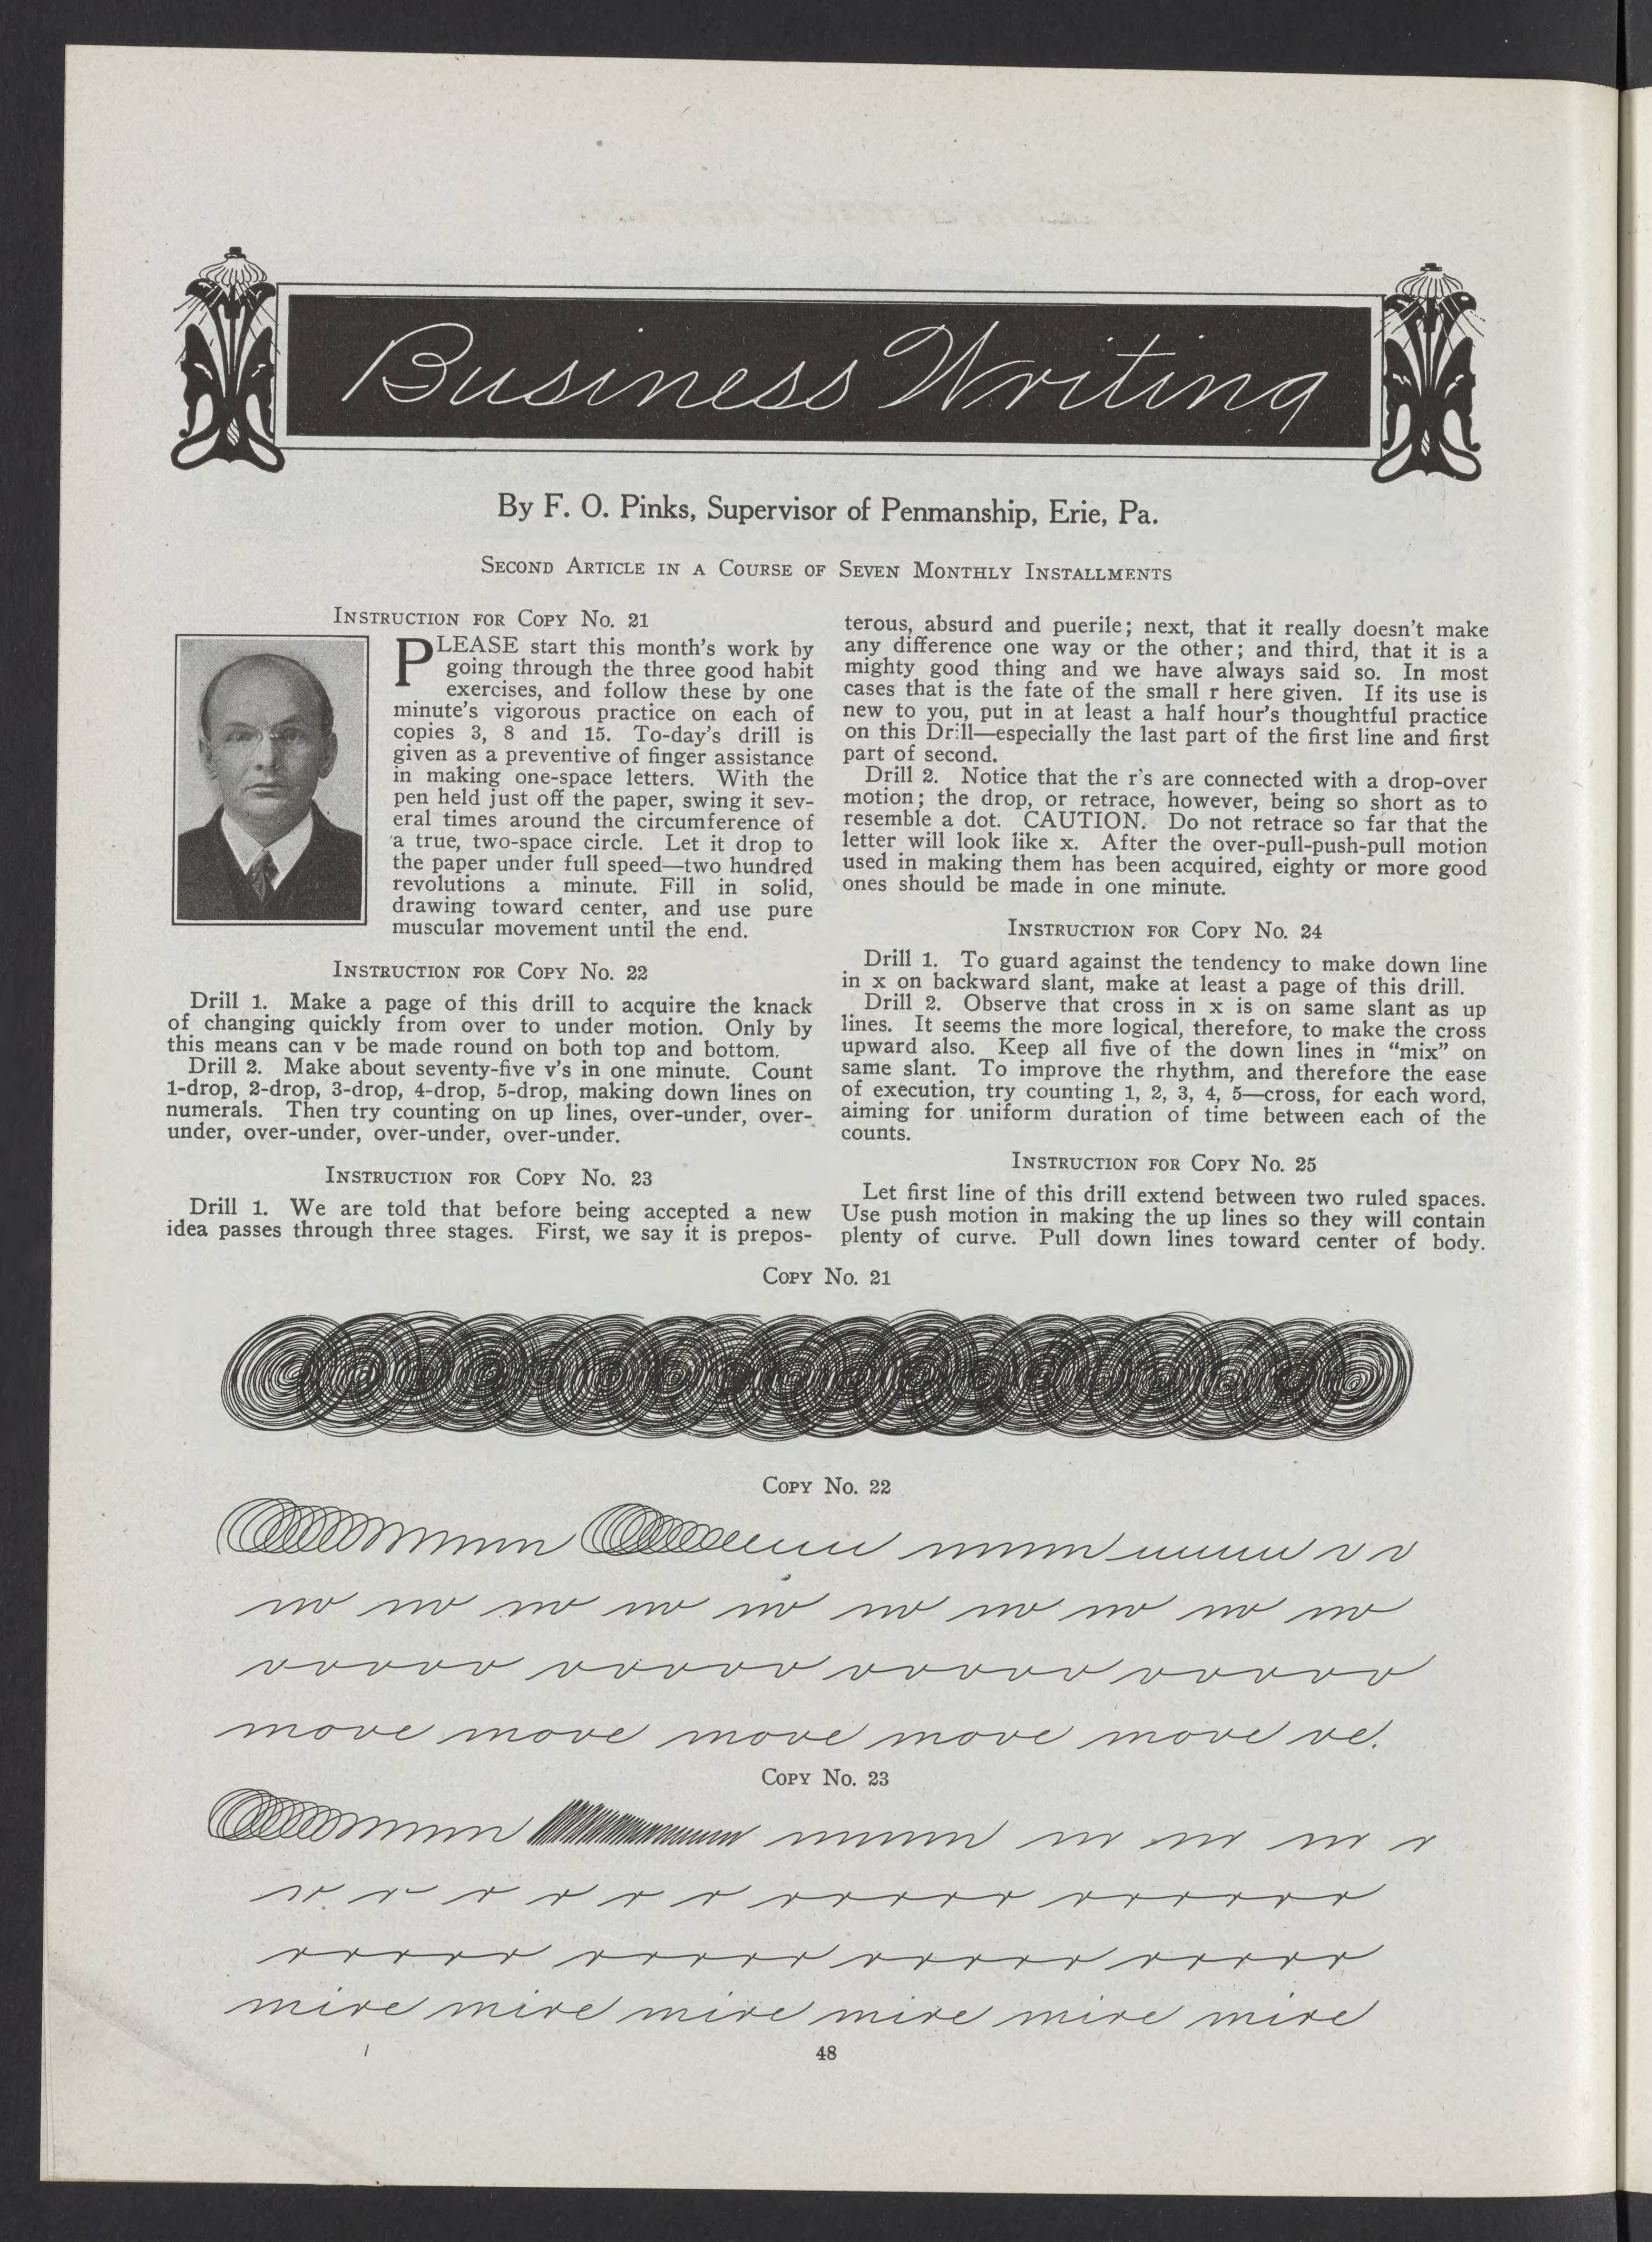 Business Writing
By F. O. Pinks, Supervisor of Penmanship, Erie, Pa.
Second Article in a Course of Seven Monthly Installments
Instruction for Copy No. 21
PLEASE start this month's work by
going through the three good habit
exercises, and follow these by one
minute's vigorous practice on each of
copies 3, 8 and 15. To-day's drill is
given as a preventive of finger assistance
in making one-space letters. With the
pen held just off the paper, swing it sev-
eral times around the circumference of
a true, two-space circle. Let it drop to
the paper under full speed—two hundred
revolutions a minute. Fill in solid,
drawing toward center, and use pure
muscular movement until the end.
Instruction for Copy No. 22
Drill 1. Make a page of this drill to acquire the knack
of changing quickly from over to under motion. Only by
this means can v be made round on both top and bottom.
Drill 2. Make about seventy-five v's in one minute. Count
1-drop, 2-drop, 3-drop, 4-drop, 5-drop, making down lines on
numerals. Then try counting on up lines, over-under, over-
under, over-under, over-under, over-under.
Instruction for Copy No. 23
Drill 1. We are told that before being accepted a new
idea passes through three stages. First, we say it is prepos-
terous, absurd and puerile; next, that it really doesn't make
any difference one way or the other; and third, that it is a
mighty good thing and we have always said so. In most
cases that is the fate of the small r here given. If its use is
new to you, put in at least a half hour's thoughtful practice
on this Drill—especially the last part of the first line and first
part of second.
Drill 2. Notice that the r's are connected with a drop-over
motion; the drop, or retrace, however, being so short as to
resemble a dot. CAUTION. Do not retrace so far that the
letter will look like x. After the over-pull-push-pull motion
used in making them has been acquired, eighty or more good
ones should be made in one minute.
Instruction for Copy No. 24
Drill 1. To guard against the tendency to make down line
in x on backward slant, make at least a page of this drill.
Drill 2. Observe that cross in x is on same slant as up
lines. It seems the more logical, therefore, to make the cross
upward also. Keep all five of the down lines in "mix" on
same slant. To improve the rhythm, and therefore the ease
of execution, try counting 1, 2, 3, 4, 5—cross, for each word,
aiming for uniform duration of time between each of the
counts.
Instruction for Copy No. 25
Let first line of this drill extend between two ruled spaces.
Use push motion in making the up lines so they will contain
plenty of curve. Pull down lines toward center of body.
Copy No. 21
Copy No. 22
v v
vvvvv vvvvv vvvvv vvvvv
move move move move move ve.
Copy No. 23
r
rrrrr rrrrr rrrrr rrrrr
mire mire mire mire mire mire
48